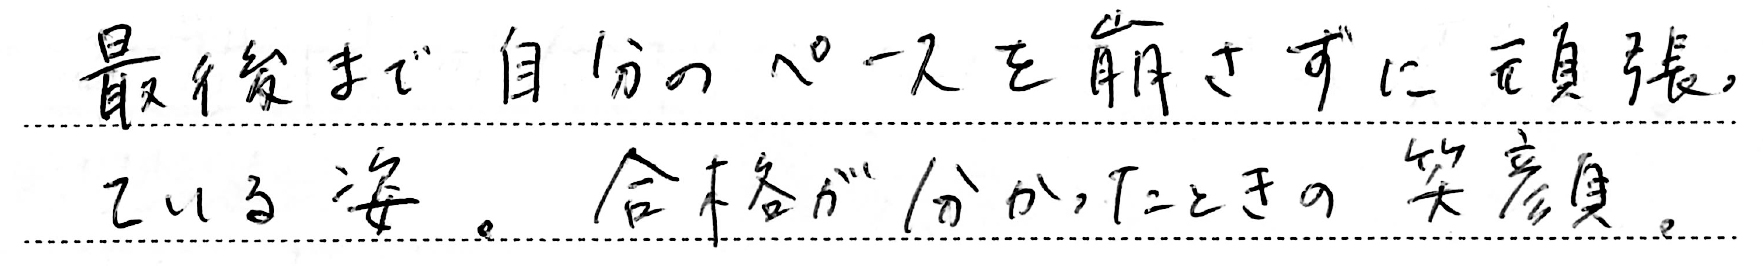 最後まで自分のペースを崩さずに頑張っ
ている姿。合格が分かったときの笑顔。